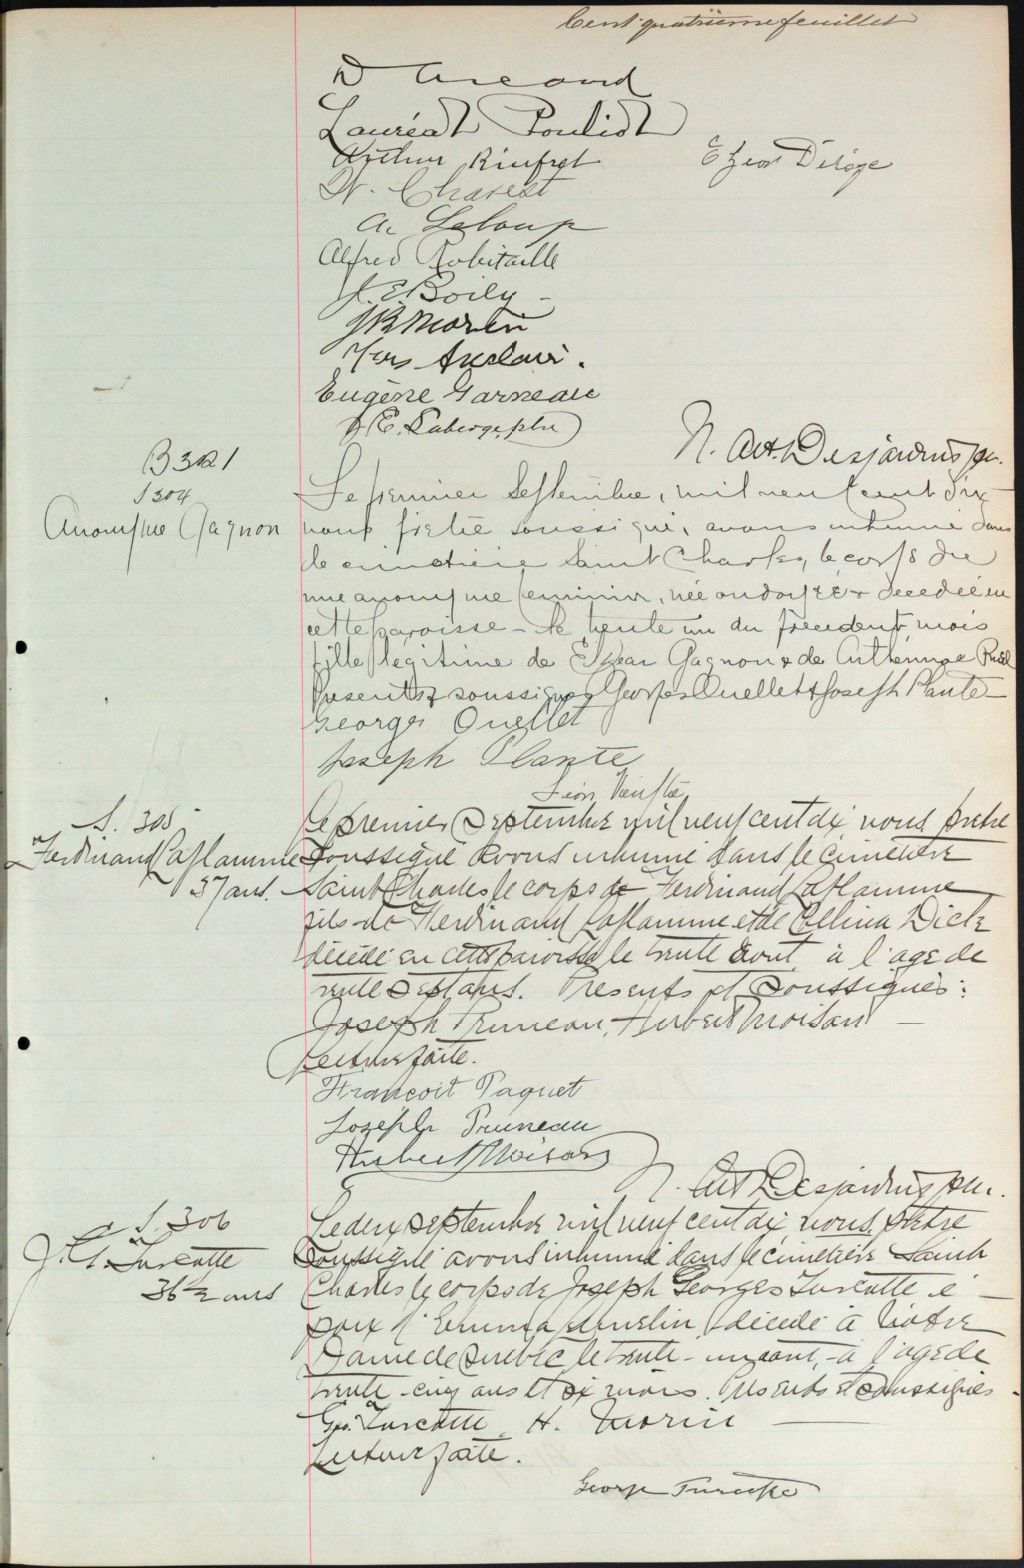 Cent quatrième feuillet
D Arcand
Lauréat Pouliot
Arthur Rinfret
N. Charest
A. Leloup
Alfred Robitaille
J. E. Boily
J B Morin
Eugène Garneau
E. Laberge, ptre
N. Art. Desjardins ptr.
B 321
S 304
Anonyme Gagnon
Le premier Septembre, mil neuf cent dix
nous prêtre soussigné, avons inhumé dans
le cimetière Saint Charles, le corps de
une anonyme feminin, née ondoyée & decedée en
cette paroisse le trente un du précédent mois
fille légitime de Gagnon & de
Presents & soussignés Georges Ouellet & Joseph Plante
Georges Ouellet
Joseph Plante
S. 305
Ferdinand Laflamme
37 ans.
Le premier Septembre mil neuf cent dix nous prêtre
soussigné avons inhumé dans le cimetière
Saint Charles le corps de Ferdinand Laflamme
fils de Ferdinand Laflamme et de Collina Dick
décédé en cette paroisse le trente aout à l'age de
trente sept ans. Presents et soussignés:
Joseph Pruneau, Hubert Moisan
Lecture faite.
Francoit Paquet
Joseph Pruneau
Hubert Moisan
N. Art Desjardins ptr.
S. 306
J. G. Turcotte
36 1/2 ans
Le deux septembre mil neuf cent dix, nous, prêtre
soussigné avons inhumé dans le cimetière Saint
Charles le corps de Joseph Georges Turcotte é
poux d'Emma décédé à Notre
Dame de Québec le trente-un aout, à l'age de
trente-cinq ans et six mois. Presents et soussignés
Geo. Turcotte, H. Morin
Lecture faite.
George Turcotte